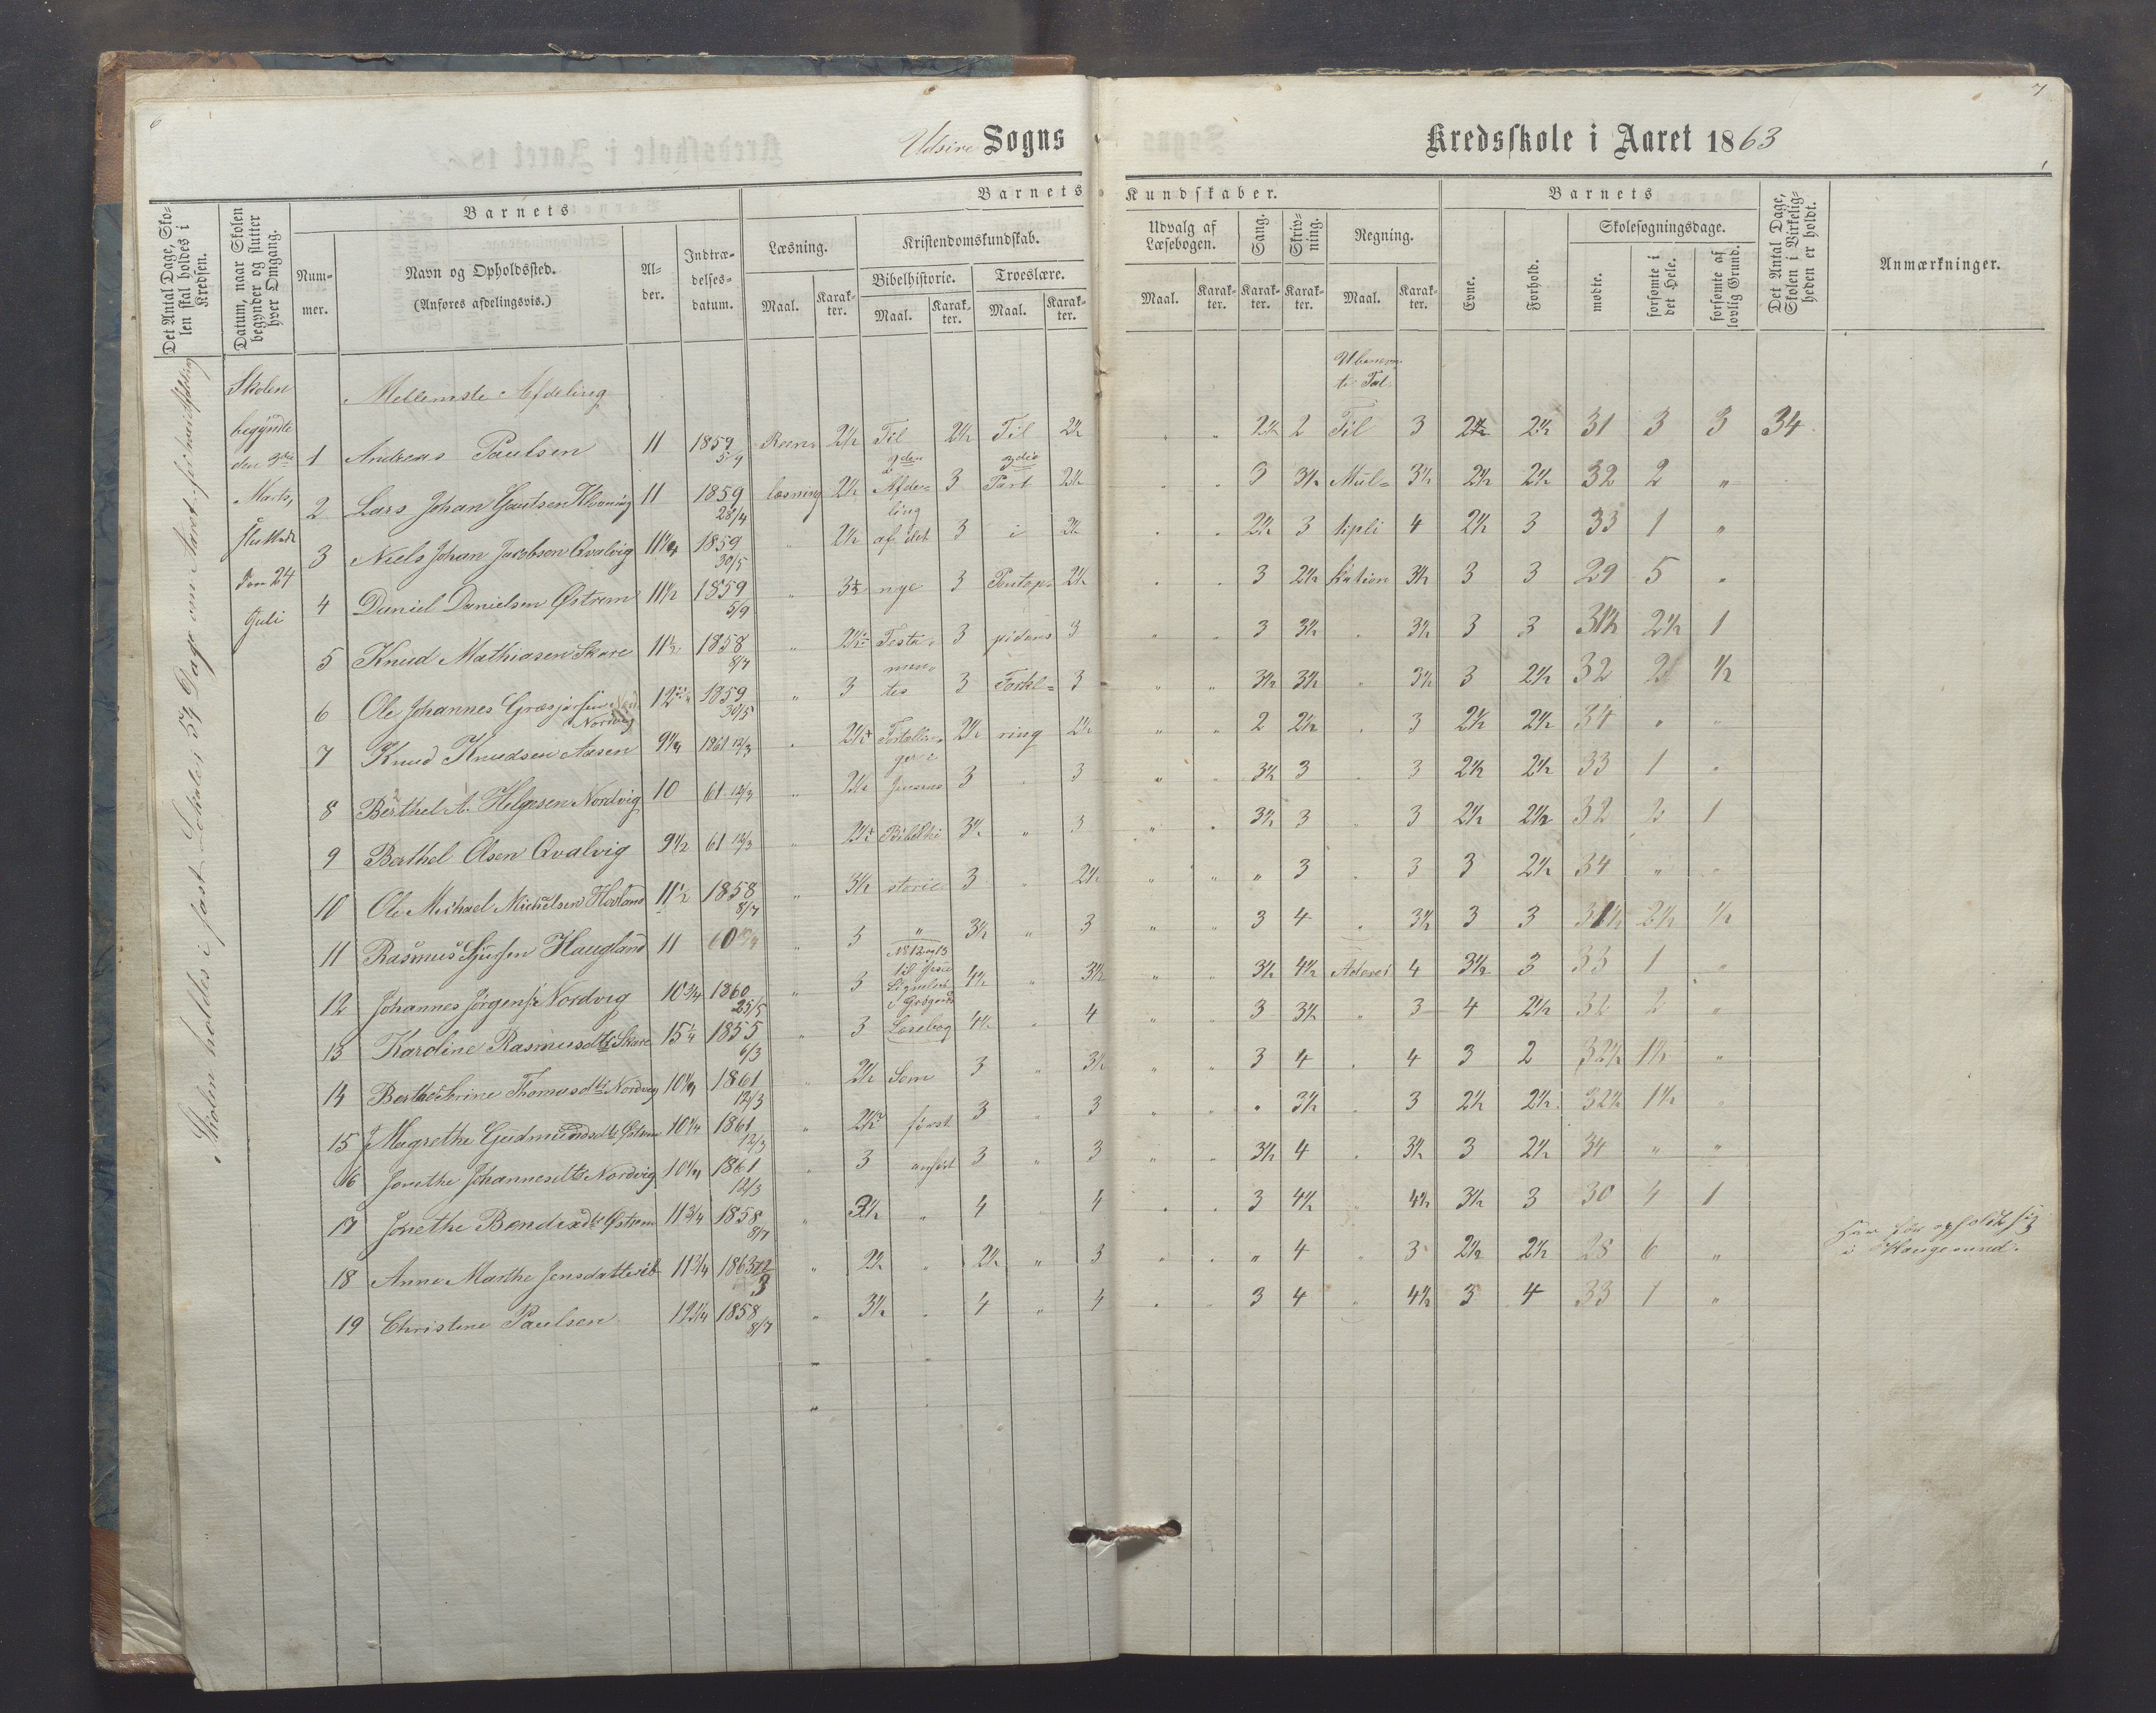 6
Udsire Sogns
Kredsskole i Aaret 1863
7
Det Antal Dage, Skolen skal holdes i Kredsen.
Datum, naar Skolen begynder og slutter hver Omgang.
Barnets
Nummer.
Navn og Opholdssted.
(Anføres afdelingsvis.)
Alder.
Indtrædelsesdatum.
Barnets Kundskaber.
Læsning.
Kristendomskundskab.
Bibelhistorie.
Troeslære.
Maal. Karakter. Maal. Karakter. Maal. Karakter.
Udvalg af Læsebogen.
Sang.
Skrivning.
Regning.
Maal. Karakter. Karakter. Karakter. Maal. Karakter.
Barnets
Evne.
Forhold.
Skolesøgningsdage.
mødte.
forsømte i det Hele.
forsømte af lovlig Grund.
Det Antal Dage, Skolen i Virkeligheden er holdt.
Anmærkninger.
Skolen holdes i fast Lokale i 54 Dage om Aaret for hver Afdeling
Skolen begyndte den 9de Marts, sluttede den 24 Juli
Mellemste Afdeling
te Tal
1 Andreas Paulsen 11 1859 5/9 Reen 2½ Til 2½ Til 2½ 2½ 2 Til 3 2½ 2½ 31 3 3 34
2 Lars Johan Gautsen Klovning 11 1859 28/4 læsning 2½ Afdeling 3 Part 2½ 3 3½ Mul= 3½ 2½ 2½ 32 2 "
3 Niels Johan Jacobsen Qvalvig 11¼ 1859 30/5 " 2½ af det 3 i 2½ 2½ 3 tipli 4 2½ 3 33 1 "
4 Daniel Danielsen Østrem 11½ 1859 5/9 " 3½ nye 3 Pontop= 2½ 3 2½ kation 3½ 3 3 29 5 "
5 Knud Mathiasen Skare 11½ 1858 8/7 " 2½ Testa= 3 pidans 3 3 3½ " 3½ 3 3 31½ 2½ 1
6 Ole Johannes Nordvig 12 1859 30/5 " 3 mentes 3 Forkl= 3 3½ 3½ " 3½ 3 2½ 32 2 ½
7 Knud Knudsen Aasen 9¼ 1861 12/3 " 2½ Fortællinger i 2½ ring 2½ 2 2½ " 3 2½ 2½ 34 " "
8 Berthel A. Helgesen Nordvig 10 61 12/3 " 2½ Jensens 3 " 3 3½ 3 " 3 2½ 2½ 33 1 "
9 Berthel Olsen Qvalvig 9½ 61 12/3 " 2½ Bibelhi 3½ " 3 3½ 3 " 3 2½ 2½ 32 2 1
10 Ole Michael Michelsen Hovland 11½ 1858 8/7 " 3½ storie 3 " 2½ " 3 " 3 3 2½ 34 " "
11 Rasmus Haugland 11 60 " 3 " 3½ " 3 3 4 " 3½ 3 3 31½ 2½ ½
12 Johannes Jørgens. Nordvig 10¾ 1860 25/5 " 3 4½ " 3½ 3½ 4½ 4 3½ 3 33 1 "
13 Karoline Rasmusdtr Skare 15¼ 1855 6/3 " 3 Læsebog 4½ " 4 3 3½ " 3 4 2½ 32 2 "
14 Berthe Serine Thomasdtr Nordvig 10¼ 1861 12/3 " 2½ Som 3 " 3½ 3 4 " 4 3 2 32½ 1½ "
15 Magrethe Gudmundsdtr Østrem 10¼ 1861 12/3 " 2½ først 3 " 3 " 3½ " 3 2½ 2½ 32½ 1½ "
16 Jorethe Johannesdtr Nordvig 10¼ 1861 12/3 " 3 anført 3 " 3 3½ 4 " 3½ 3 2½ 34 " "
17 Jorethe Bendixdtr Østrem 11¾ 1858 8/7 " 3½ " 4 " 4 3 4½ " 4½ 3½ 3 30 4 1
18 Anne Marthe Jensdatter 11¾ 1863 12/3 " 2½ " 2½ " 3 " 4 " 3 2½ 2½ 28 6 " Har før opholdt sig i Haugesund.
19 Christine Paulsen 12¼ 1858 8/7 " 3½ " 4 " 4 3 4 " 4½ 3 4 33 1 "